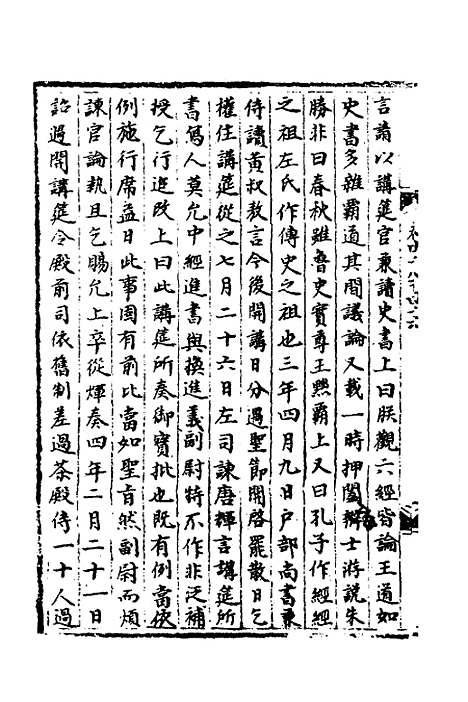 言請以講筵官兼讀史書上曰朕觀六經皆論王道如
史書多雜霸道其間議論又載一時捭闔辯士游說朱
勝非曰春秋雖魯史實尊王黜霸上又曰孔子作經經
之祖左氏作傳史之祖也三年四月九日戶部尚書兼
侍讀黃叔敖言今後開講日分遇聖節開啓罷散日乞
權住講筵從之七月二十六日左司諫唐輝言講筵所
書寫人莫允中經進書與換進義副尉特不作非泛補
授乞行追改上曰此講筵所奏御寶批也既有例當依
例施行席益曰此事固有前比當如聖旨然副尉而煩
諫官論執且乞賜允上卒從煇奏四年二月二十一日
詔遇開講筵令殿前司依舊制差過茶殿侍一十人過